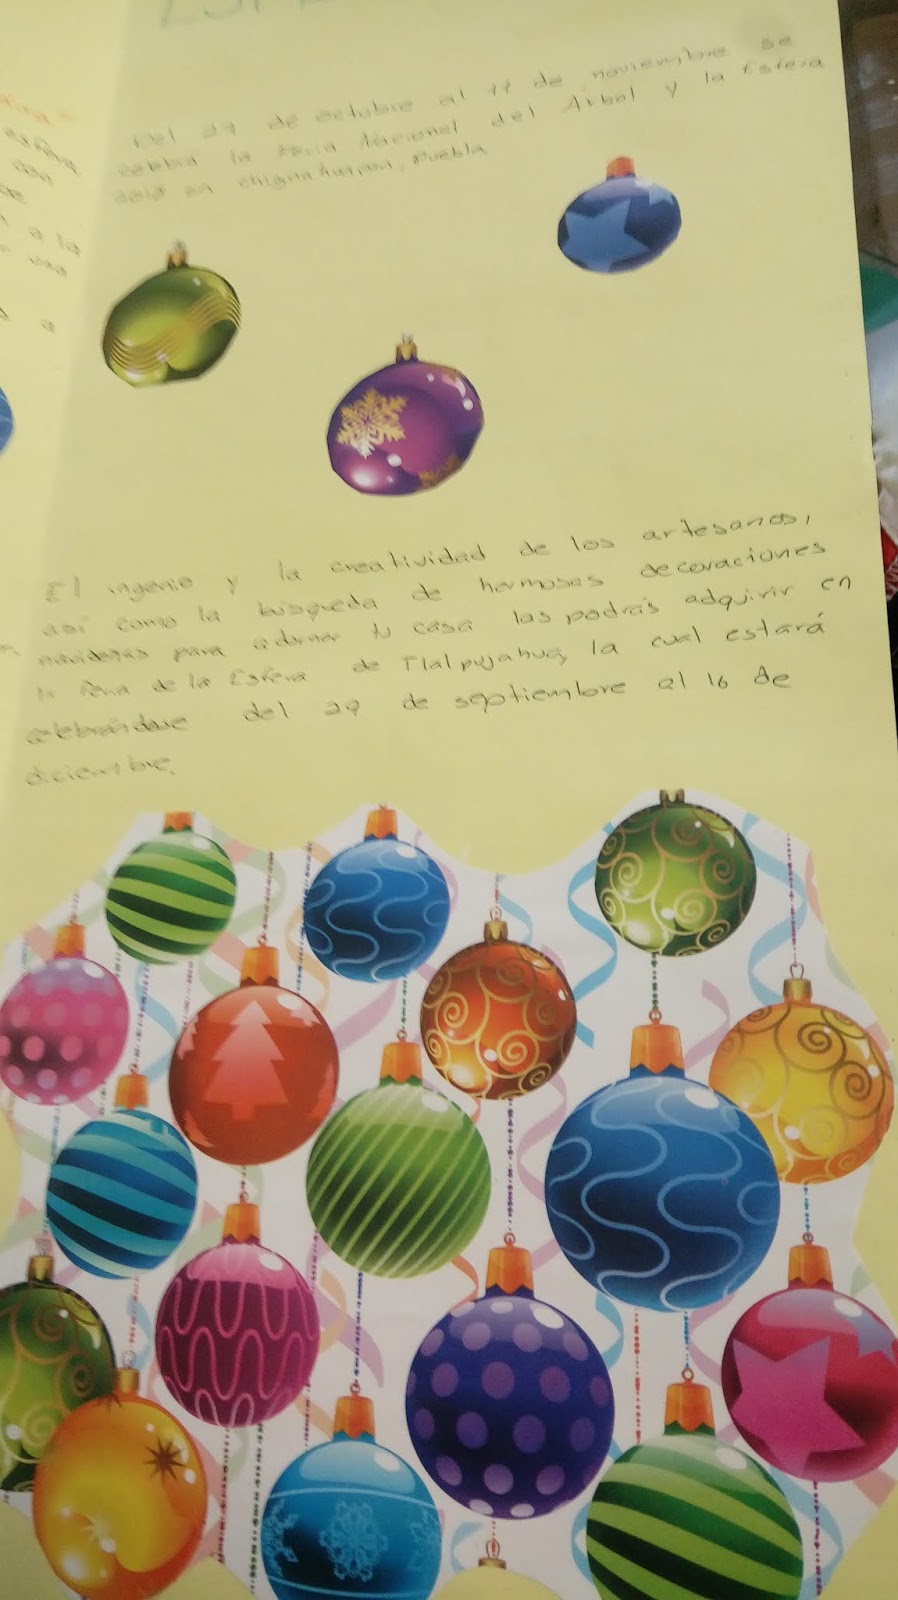 Del 27 de octubre al 19 de noviembre se
celebra la Feria Nacional del Árbol y la Esfera
2018 en Chignahuapan, Puebla
El ingenio y la creatividad de los artesanos,
así como la búsqueda de hermosas decoraciones
navideñas para adornar tu casa las podrás adquirir en
la Feria de la Esfera de Tlalpujahua, la cual estará
celebrándose del 29 de septiembre al 16 de
diciembre.
a la
una
a